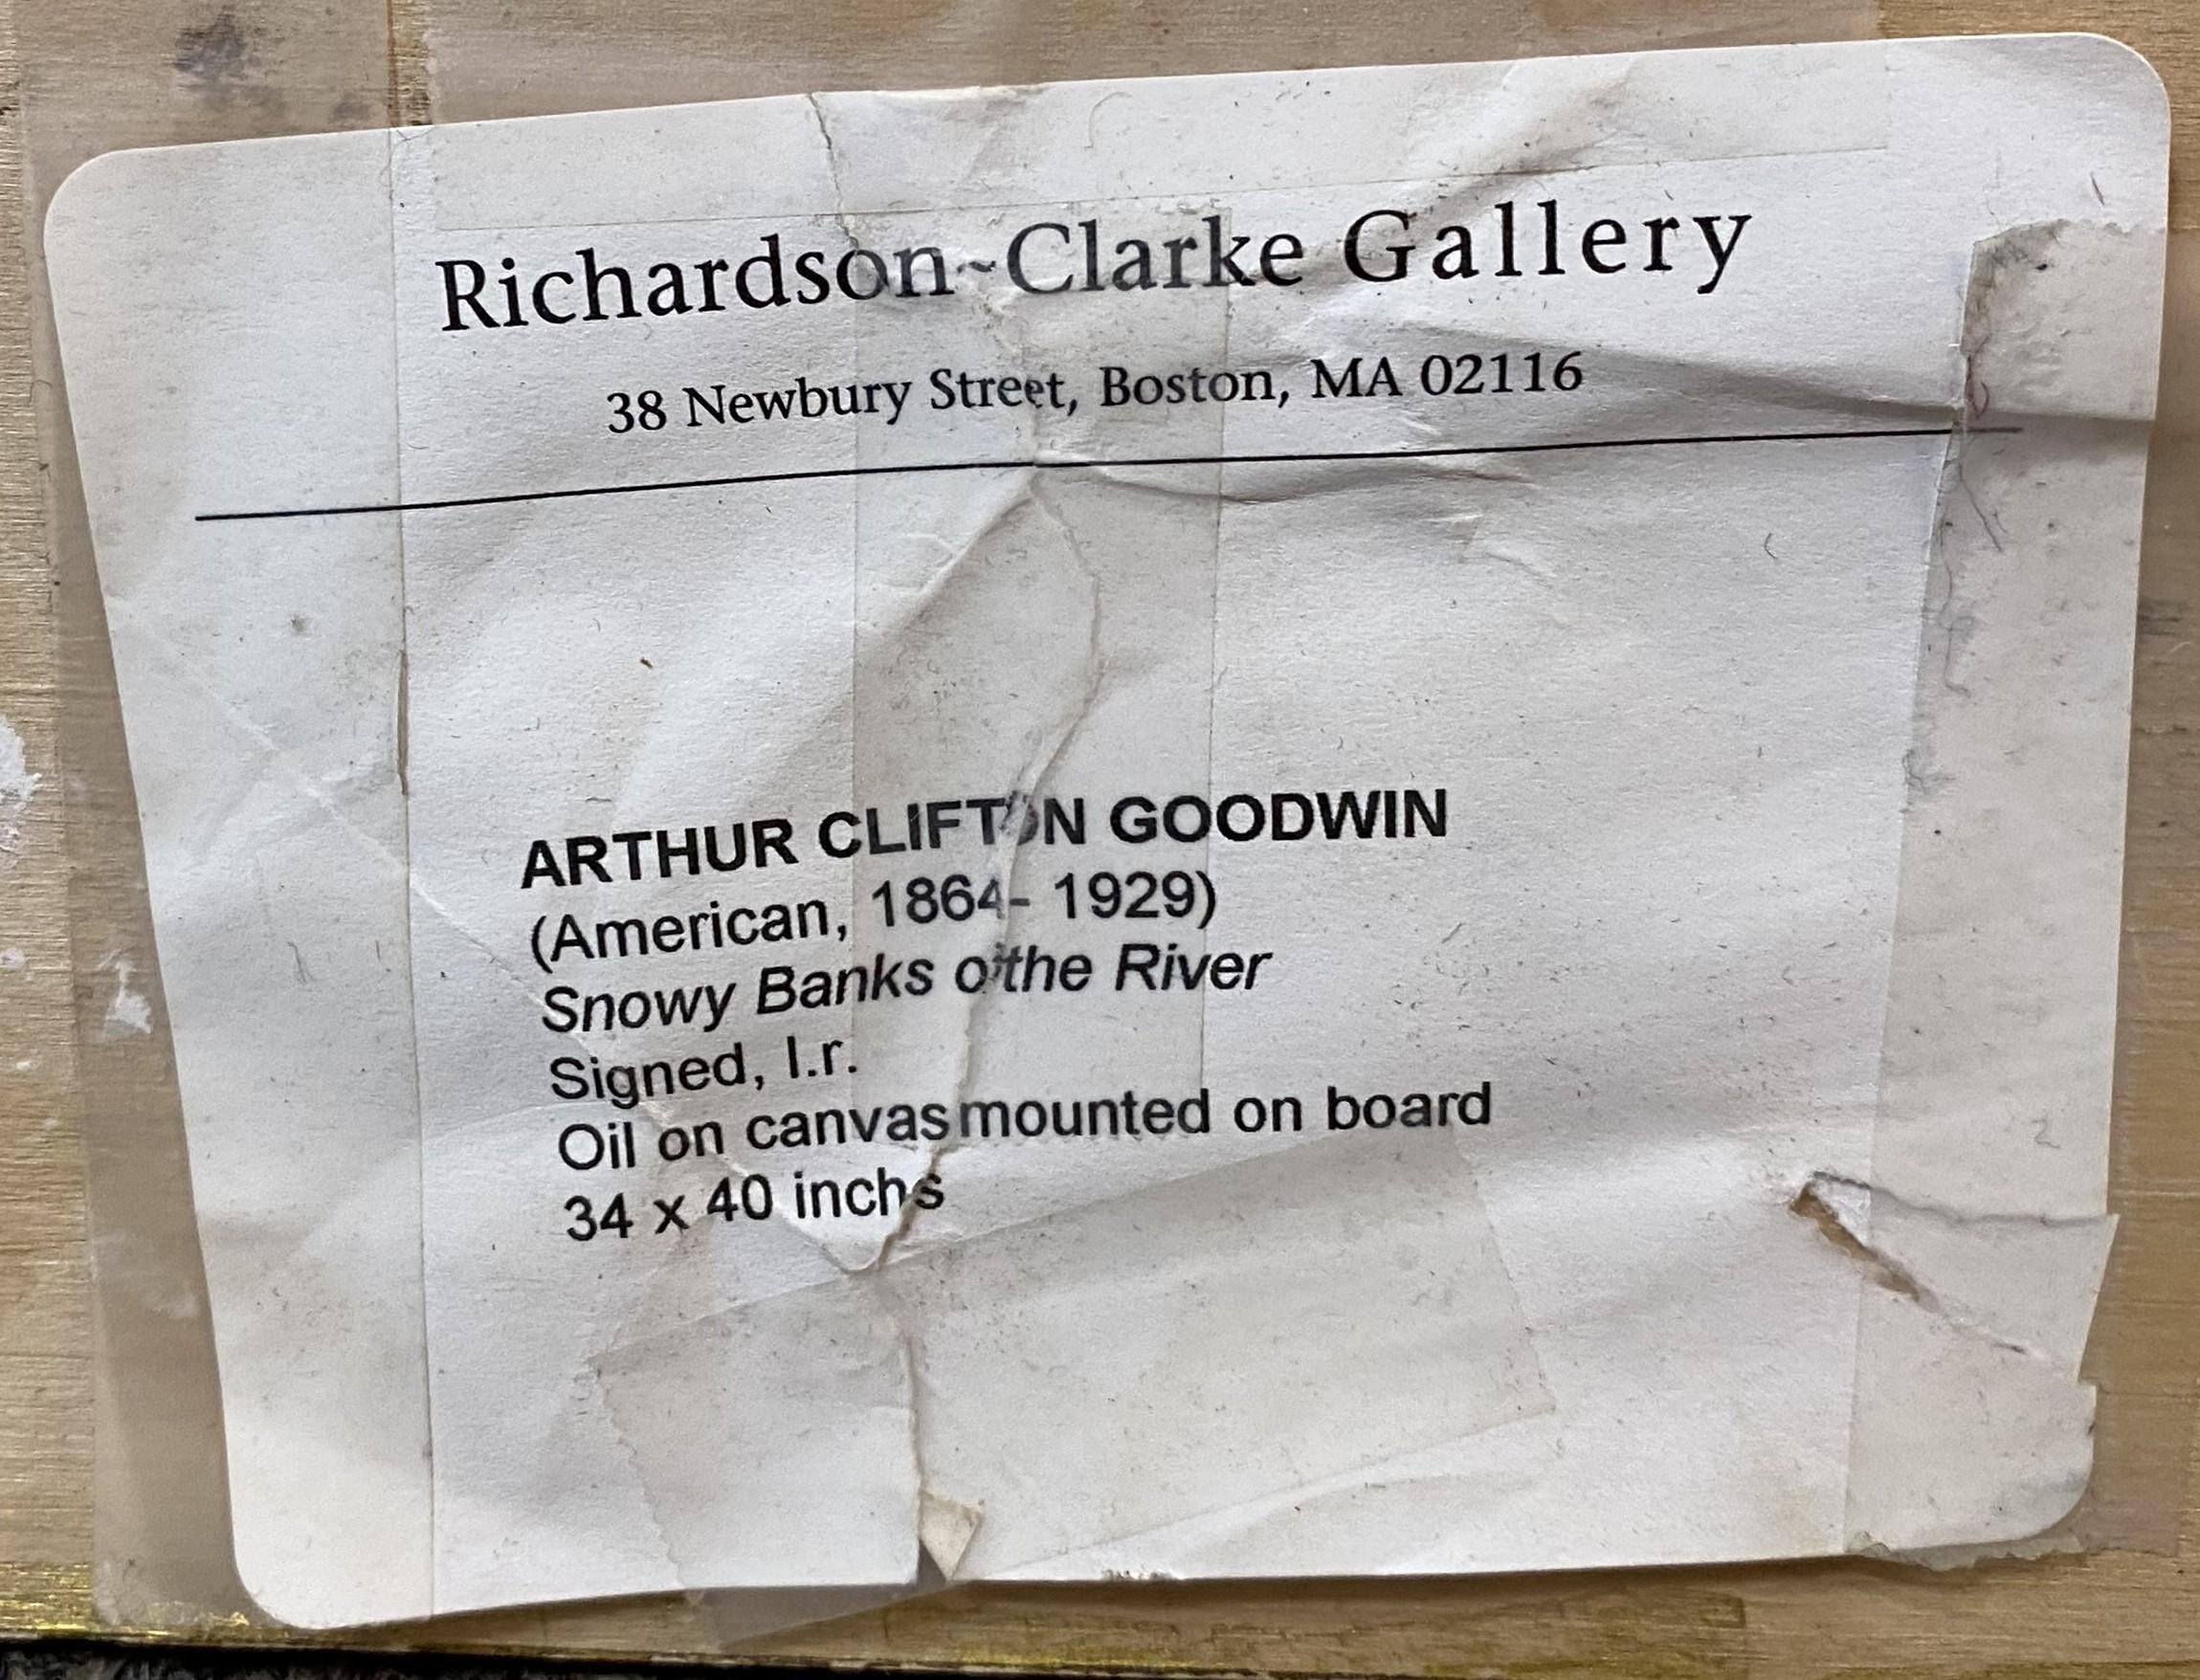 Richardson~Clarke Gallery
38 Newbury Street, Boston, MA 02116
ARTHUR CLIFTON GOODWIN
(American, 1864- 1929)
Snowy Banks of the River
Signed, l.r.
Oil on canvas mounted on board
34 x 40 inchs